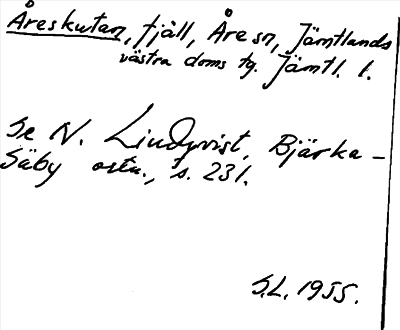 Åreskutan, fjäll, Åre sn, Jämtlands
västra doms tg. Jämtl. l.
Se N. Lindqvist, Bjärka-
Säby ortn., s. 231.
S.L. 1955.